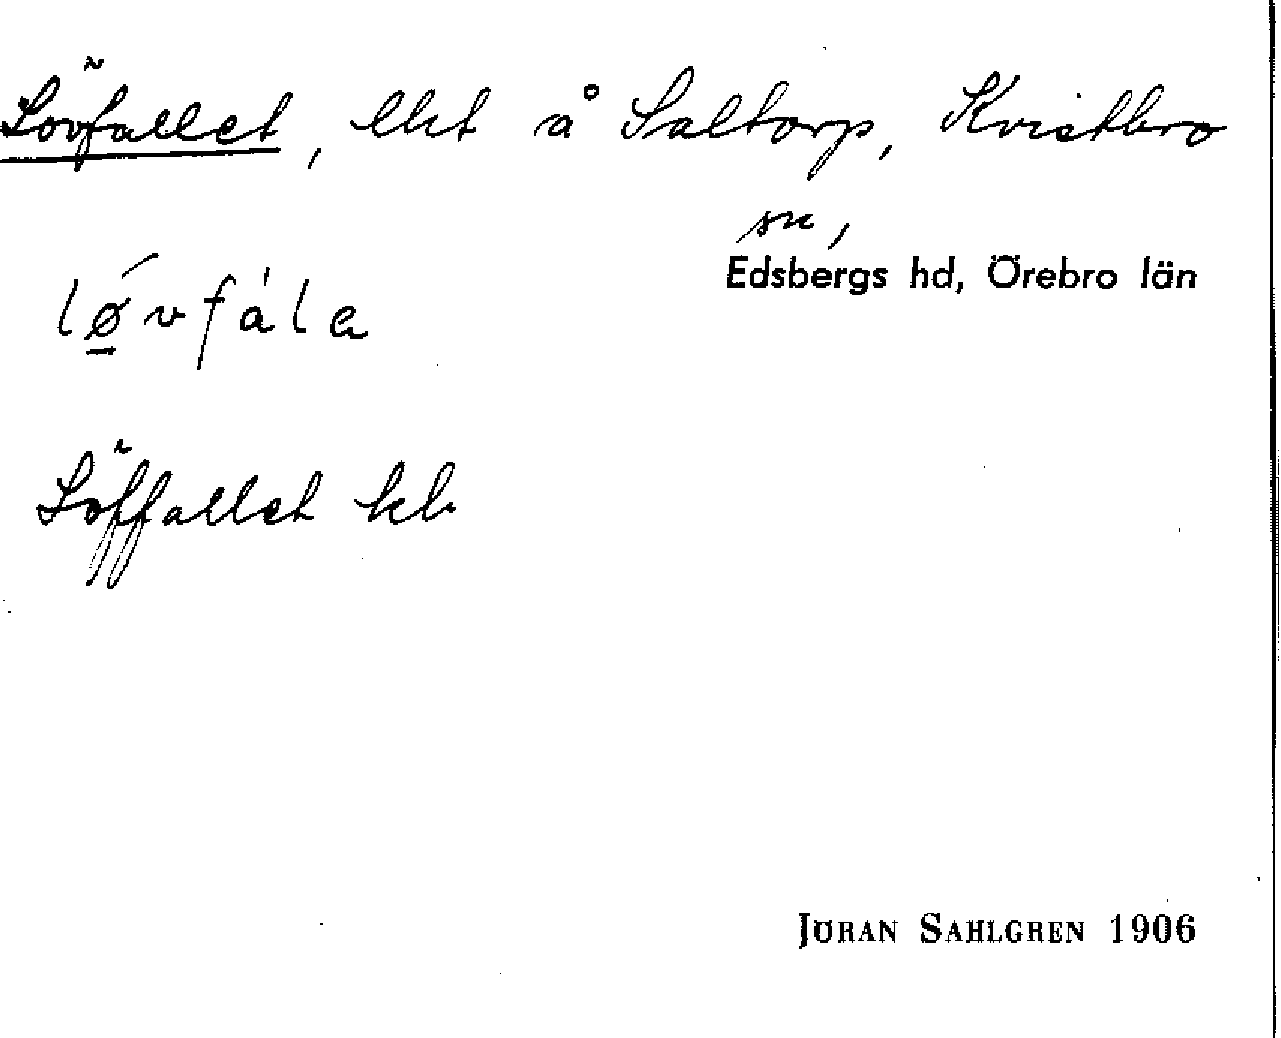 Lövfallet, lht å Saltorp, Kvistbro
sn,
Edsbergs hd, Örebro län
lǿ̱vfàla
Löffallet kb
JÖRAN SAHLGREN 1906